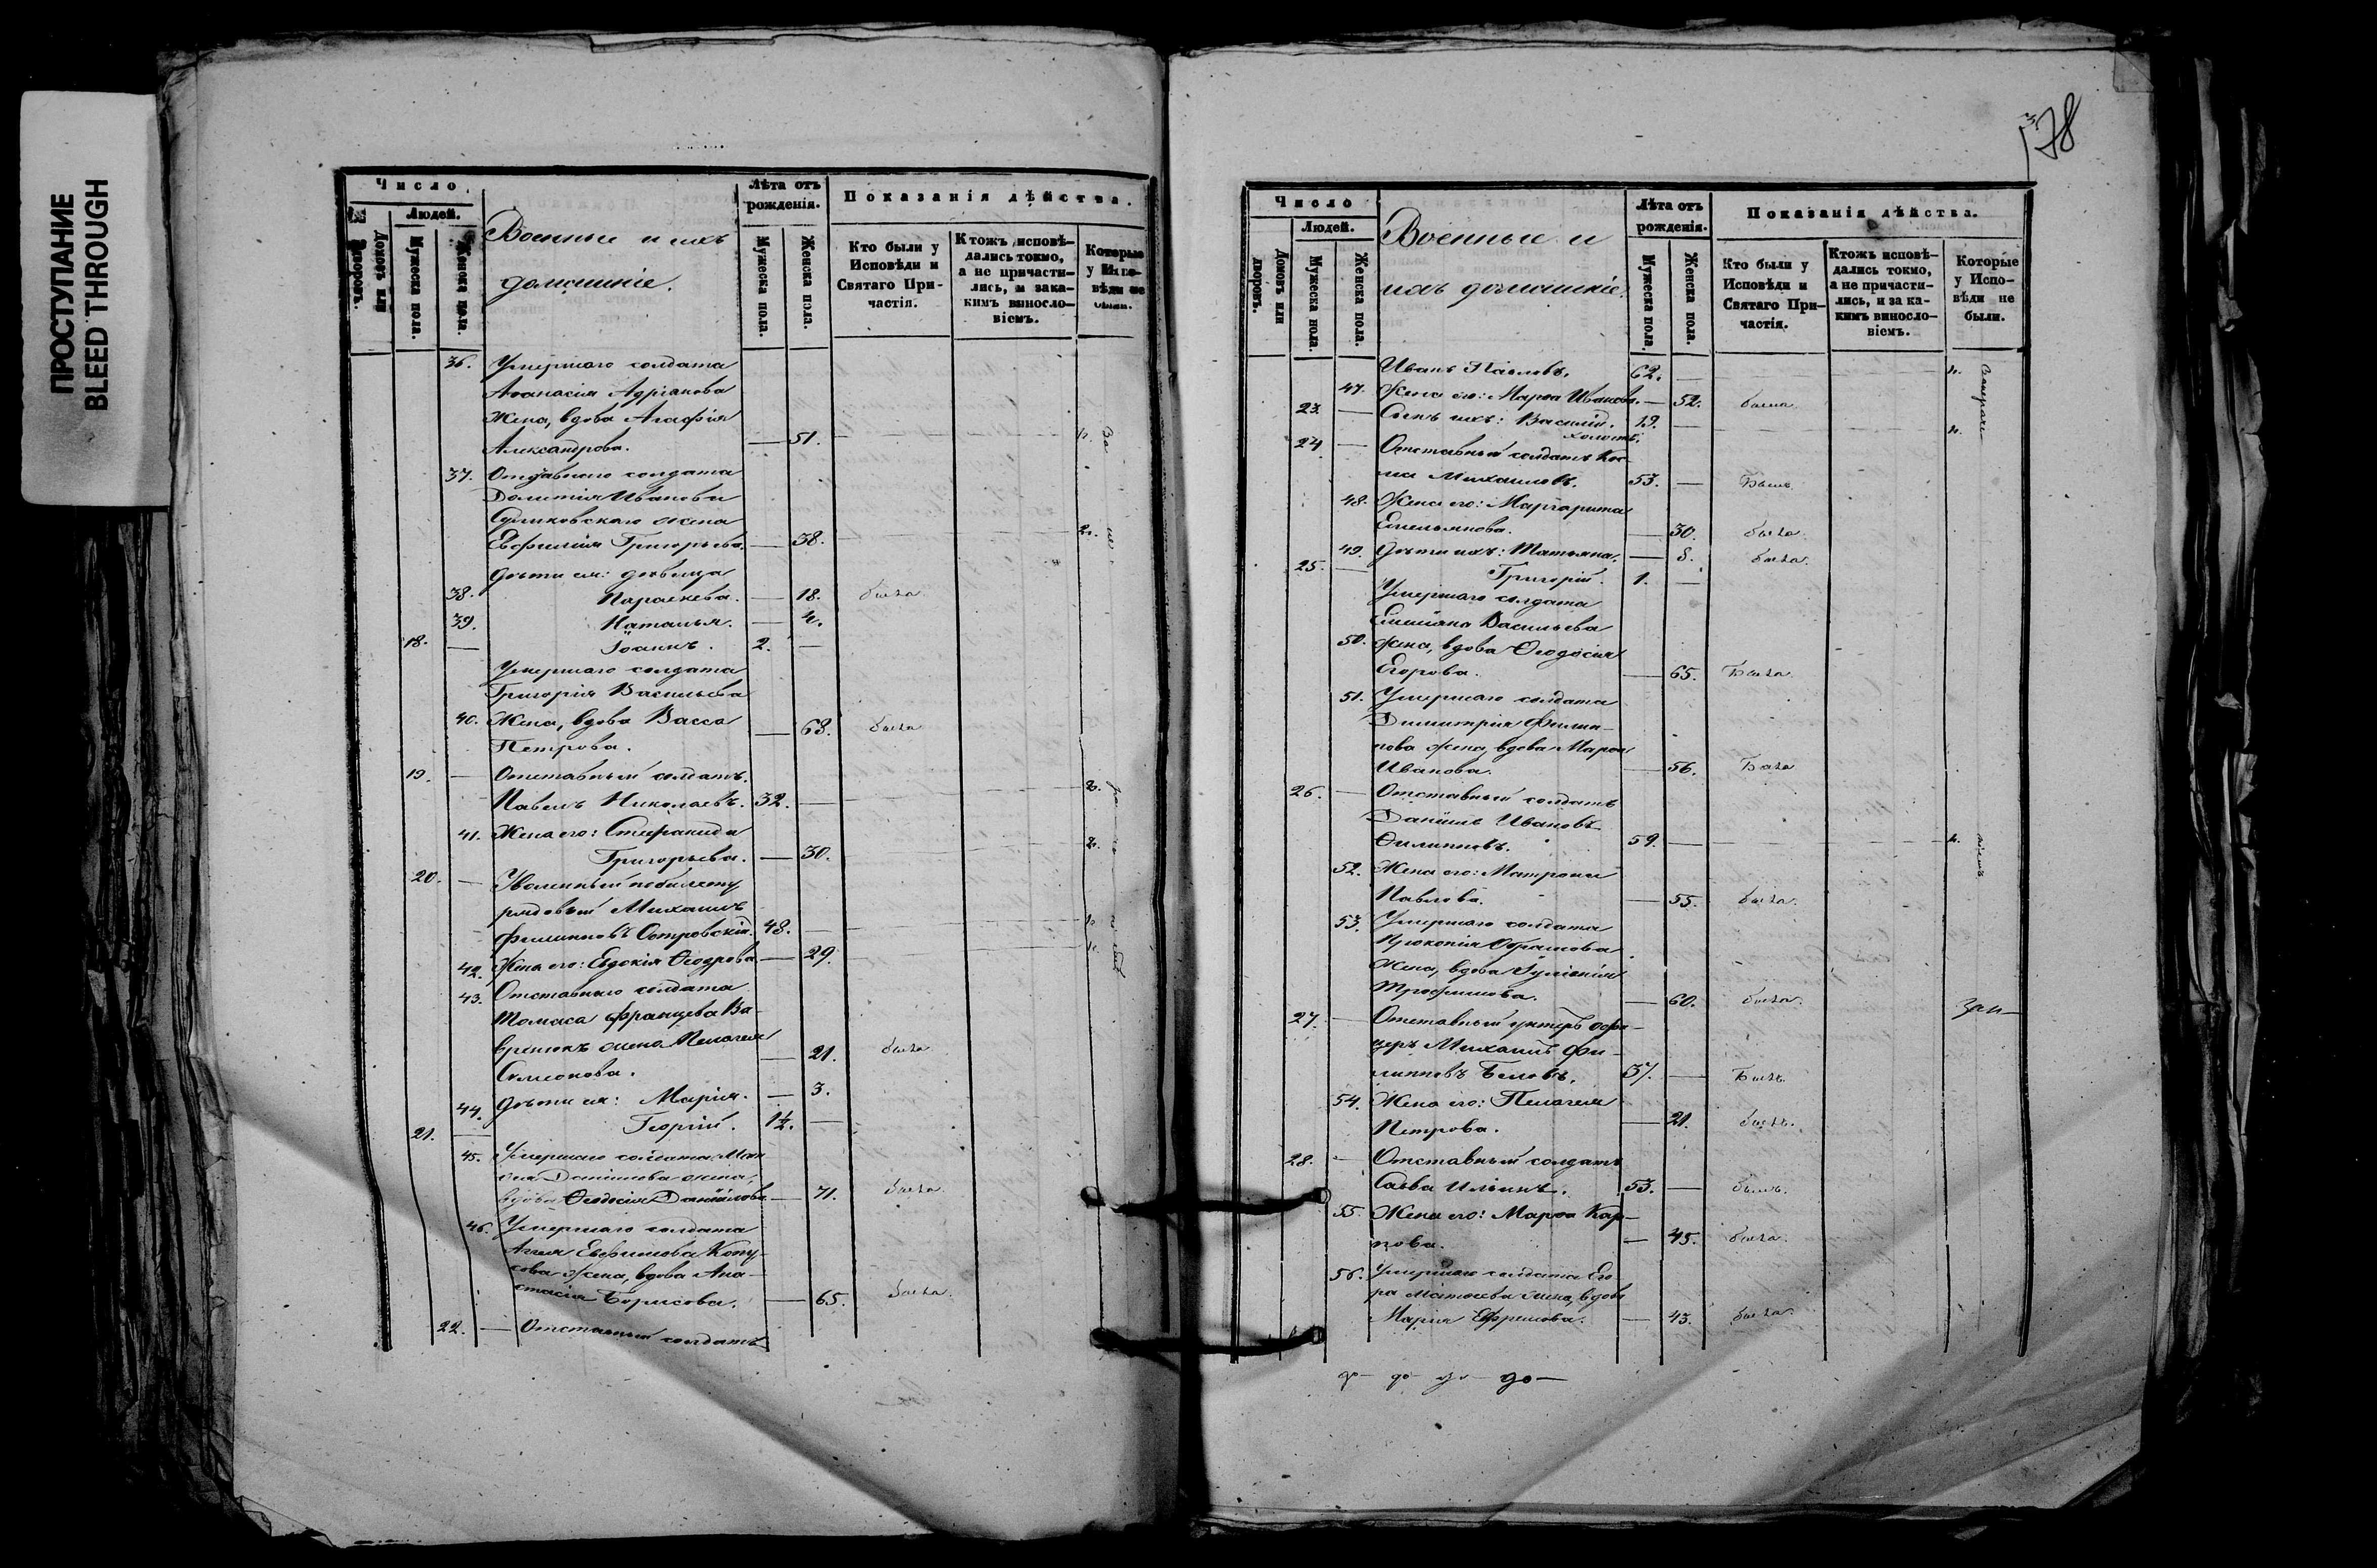 ПРОСТУПАНИЕ
BLEED THROUGH
Число
Людей.
Домовъ или дворовъ.
Мужеска пола.
Женска пола.
Военные и ихъ
домашніе.
Лѣта отъ
рожденія.
Мужеска пола.
Женска пола.
Показанія дѣйства.
Кто были у
Исповѣди и
Святаго При-
частія.
Ктожъ исповѣ-
дались токмо,
а не причасти-
лись, и зака-
кимъ винносло-
віемъ.
Которые
у Испо-
вѣди не
были.
36. Умершаго солдата
Аѳанасія Адріанова
жена, вдова Агафія
Александрова. — 51. — н.
37. Отставнаго солдата
Ивановa
жена
Евфимія Григорьева. — 38. — н.
дѣти ея: дѣвица
38. Параскева. — 18. была
39. Наталья. — 4.
18. — Іоаннъ. 2. —
Умершаго солдата
Григорія Васильева
40. Жена, вдова Васса — 68. была
Петрова.
19. — Отставный солдатъ
Павелъ Николаевъ. 32. — н.
41. Жена его: Стефанида
Григорьева. — 30. н.
20. — Уволенный по билету
рядовый Михаилъ
Филипповъ Островскій. 48. — н.
42. Жена его: Евдокія Ѳеодрова — 29. н.
43. Отставнаго солдата
Томаса Францева Ва-
жена Пелагея — 21. была
Симеонова.
44. Дѣти ея: Марія. — 3.
21. — Георгій. 1½. —
45. Умершаго солдата
Данилова жена,
вдова Ѳеодосія Даніилова — 71. была
46. Умершаго солдата
Евфимова
жена, вдова Ана-
стасія Борисова. — 65. была
22. — Отставный солдатъ
378
Число
Людей.
Домовъ или дворовъ.
Мужеска пола.
Женска пола.
Военные и
ихъ домашніе.
Лѣта отъ
рожденія.
Мужеска пола.
Женска пола.
Показанія дѣйства.
Кто были у
Исповѣди и
Святаго При-
частія.
Ктожъ исповѣ-
дались токмо,
а не причасти-
лись, и за ка-
кимъ винносло-
віемъ.
Которые
у Испо-
вѣди не
были.
Иванъ Павловъ. 62. — н.
47. Жена его: Марѳа Иванова. — 52. была
23. — Сынъ ихъ: Василій. 19. — н.
холостъ.
24. — Отставный солдатъ Кос-
ма Михаиловъ. 53. — Былъ
48. Жена его: Маргарита
Емельянова. — 30. была
49. Дѣти ихъ: Татьяна. — 8. была.
25. — Григорій. 1. —
Умершаго солдата
Васильева
50. жена, вдова Ѳеодосія
Егорова. — 65. Была
51. Умершаго солдата
Димитрія Филип-
пова жена, вдова Марѳа
Иванова. — 56. Была
26. — Отставный солдатъ
Даніилъ Ивановъ
Филипповъ. 59. — н.
52. Жена его: Матрона
Павлова. — 55. была.
53. Умершаго солдата
Прокопія
жена, вдова Іуліанія
Трофимова. — 60. была.
27. — Отставный унтеръ офи-
церъ Михаилъ Фи-
липповъ Беловъ. 37. — Былъ
54. Жена его: Пелагея
Петрова. — 21. была.
28. — Отставный солдатъ
Савва Ильинъ. 53. — былъ.
55. Жена его: Марѳа Кар-
пова. — 45. была.
56. Умершаго солдата Его-
ра Матвеева жена, вдова
Марія Ефремова. — 43. была
до —